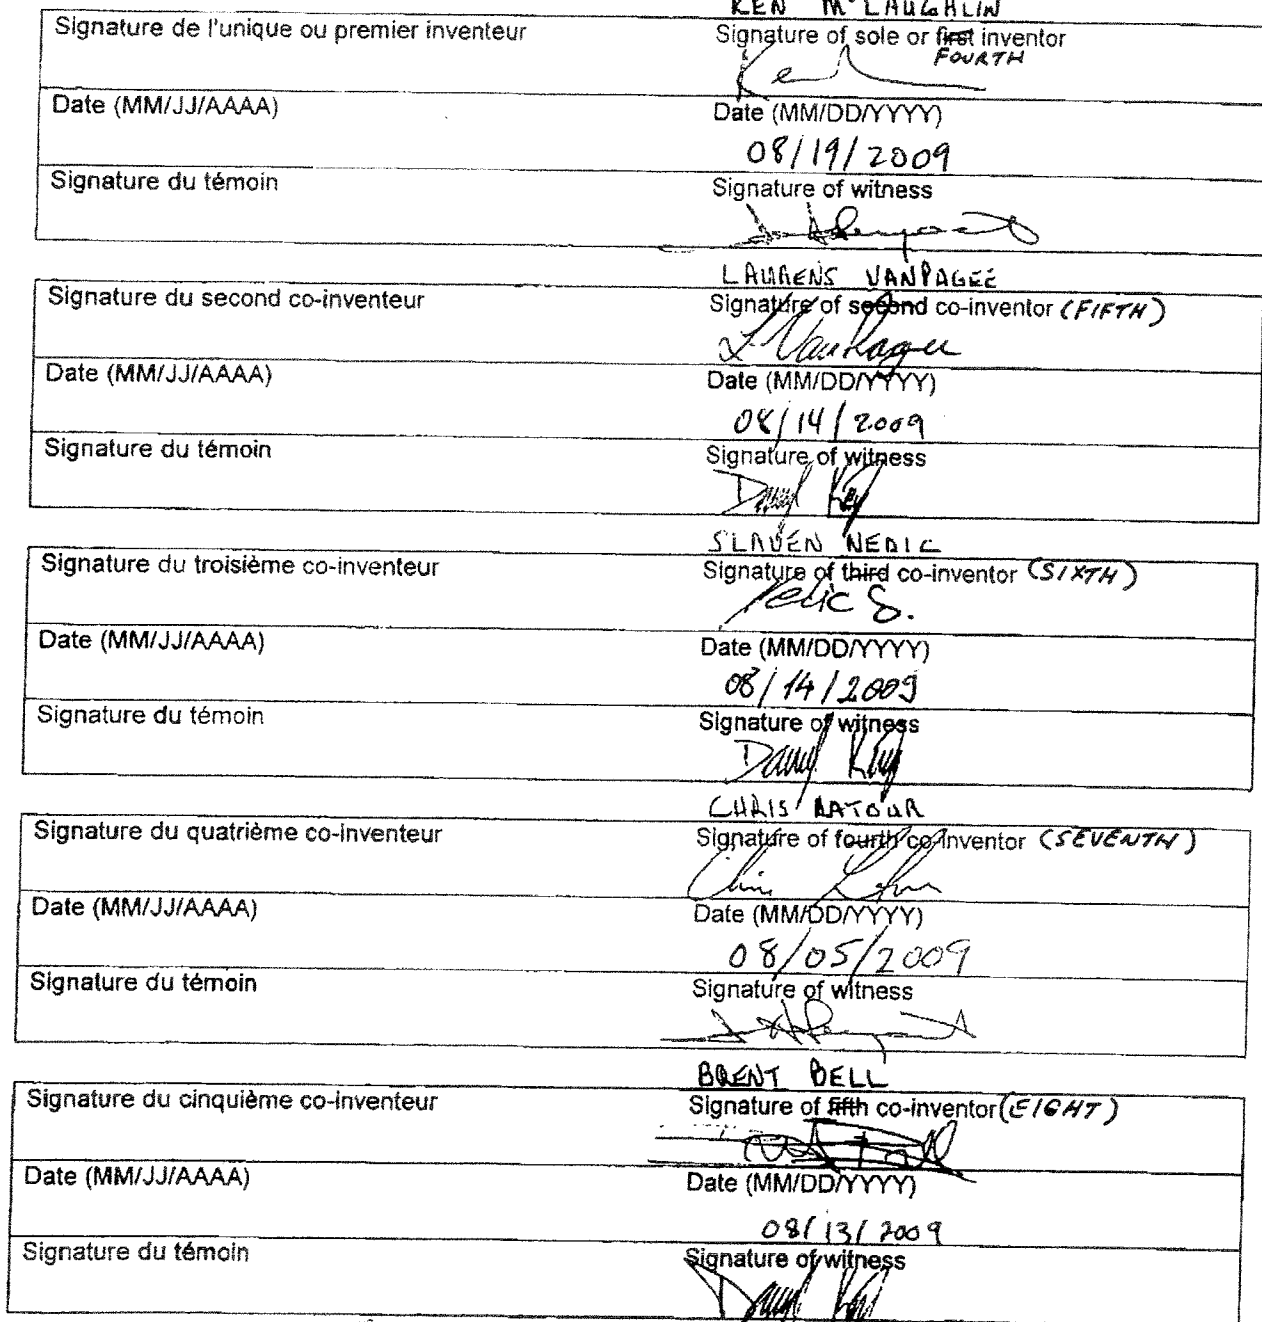 KEN McLAUGHLIN
Signature de l'unique ou premier inventeur
Signature of sole or first inventor
FOURTH
Date (MM/JJ/AAAA)
Date (MM/DD/YYYY)
08/19/2009
Signature du témoin
Signature of witness
LAURENS VANPAGEE
Signature du second co-inventeur
Signature of second co-inventor (FIFTH)
Date (MM/JJ/AAAA)
Date (MM/DD/YYYY)
08/14/2009
Signature du témoin
Signature of witness
SLAVEN NEDIC
Signature du troisième co-inventeur
Signature of third co-inventor (SIXTH)
Nedic S.
Date (MM/JJ/AAAA)
Date (MM/DD/YYYY)
08/14/2009
Signature du témoin
Signature of witness
CHRIS LATOUR
Signature du quatrième co-inventeur
Signature of fourth co-inventor (SEVENTH)
Date (MM/JJ/AAAA)
Date (MM/DD/YYYY)
08/05/2009
Signature du témoin
Signature of witness
BRENT BELL
Signature du cinquième co-inventeur
Signature of fifth co-inventor (EIGHT)
Date (MM/JJ/AAAA)
Date (MM/DD/YYYY)
08/13/2009
Signature du témoin
Signature of witness